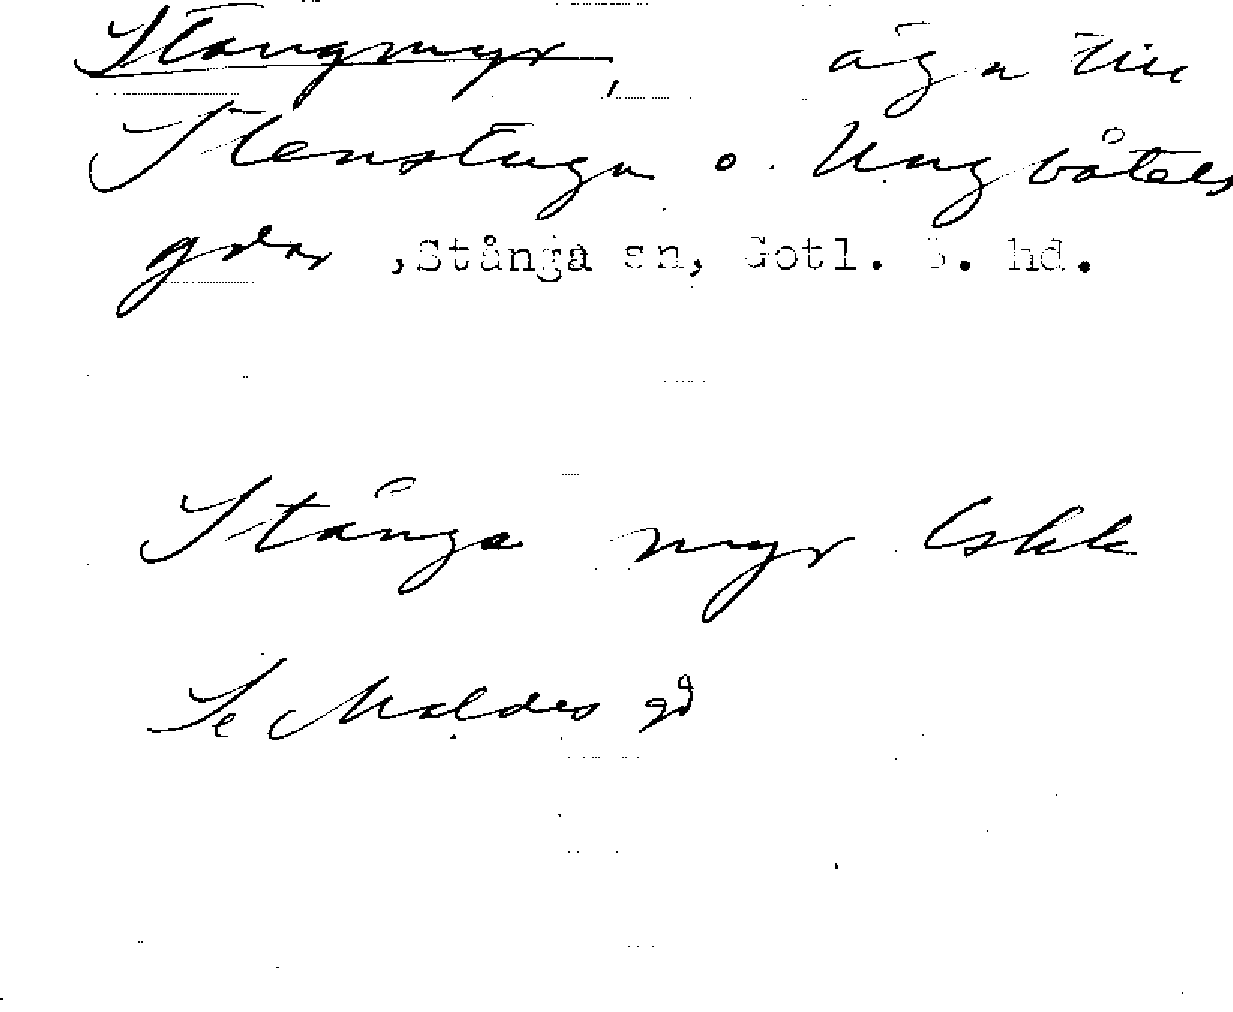 Stångmyr, äga till
Stenstugu o. Ungbåtels
gdar ,Stånga sn, Gotl. S. hd.
Stånga myr Lskk
Se Maldes gd